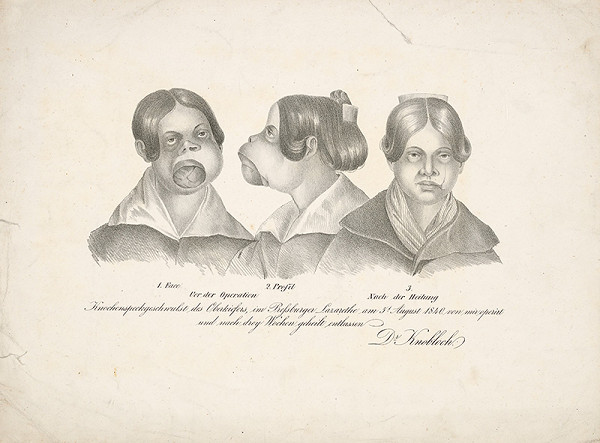 1. Face 2. Profil 3.
Vor der Operation Nach der Heilung
Knochenspeckgeschwulst des Oberkiefers, im Preßburger Lazarethe am 5t August 1840 von mir operirt
und nach drey Wochen geheilt entlassen
Dr Knobloch